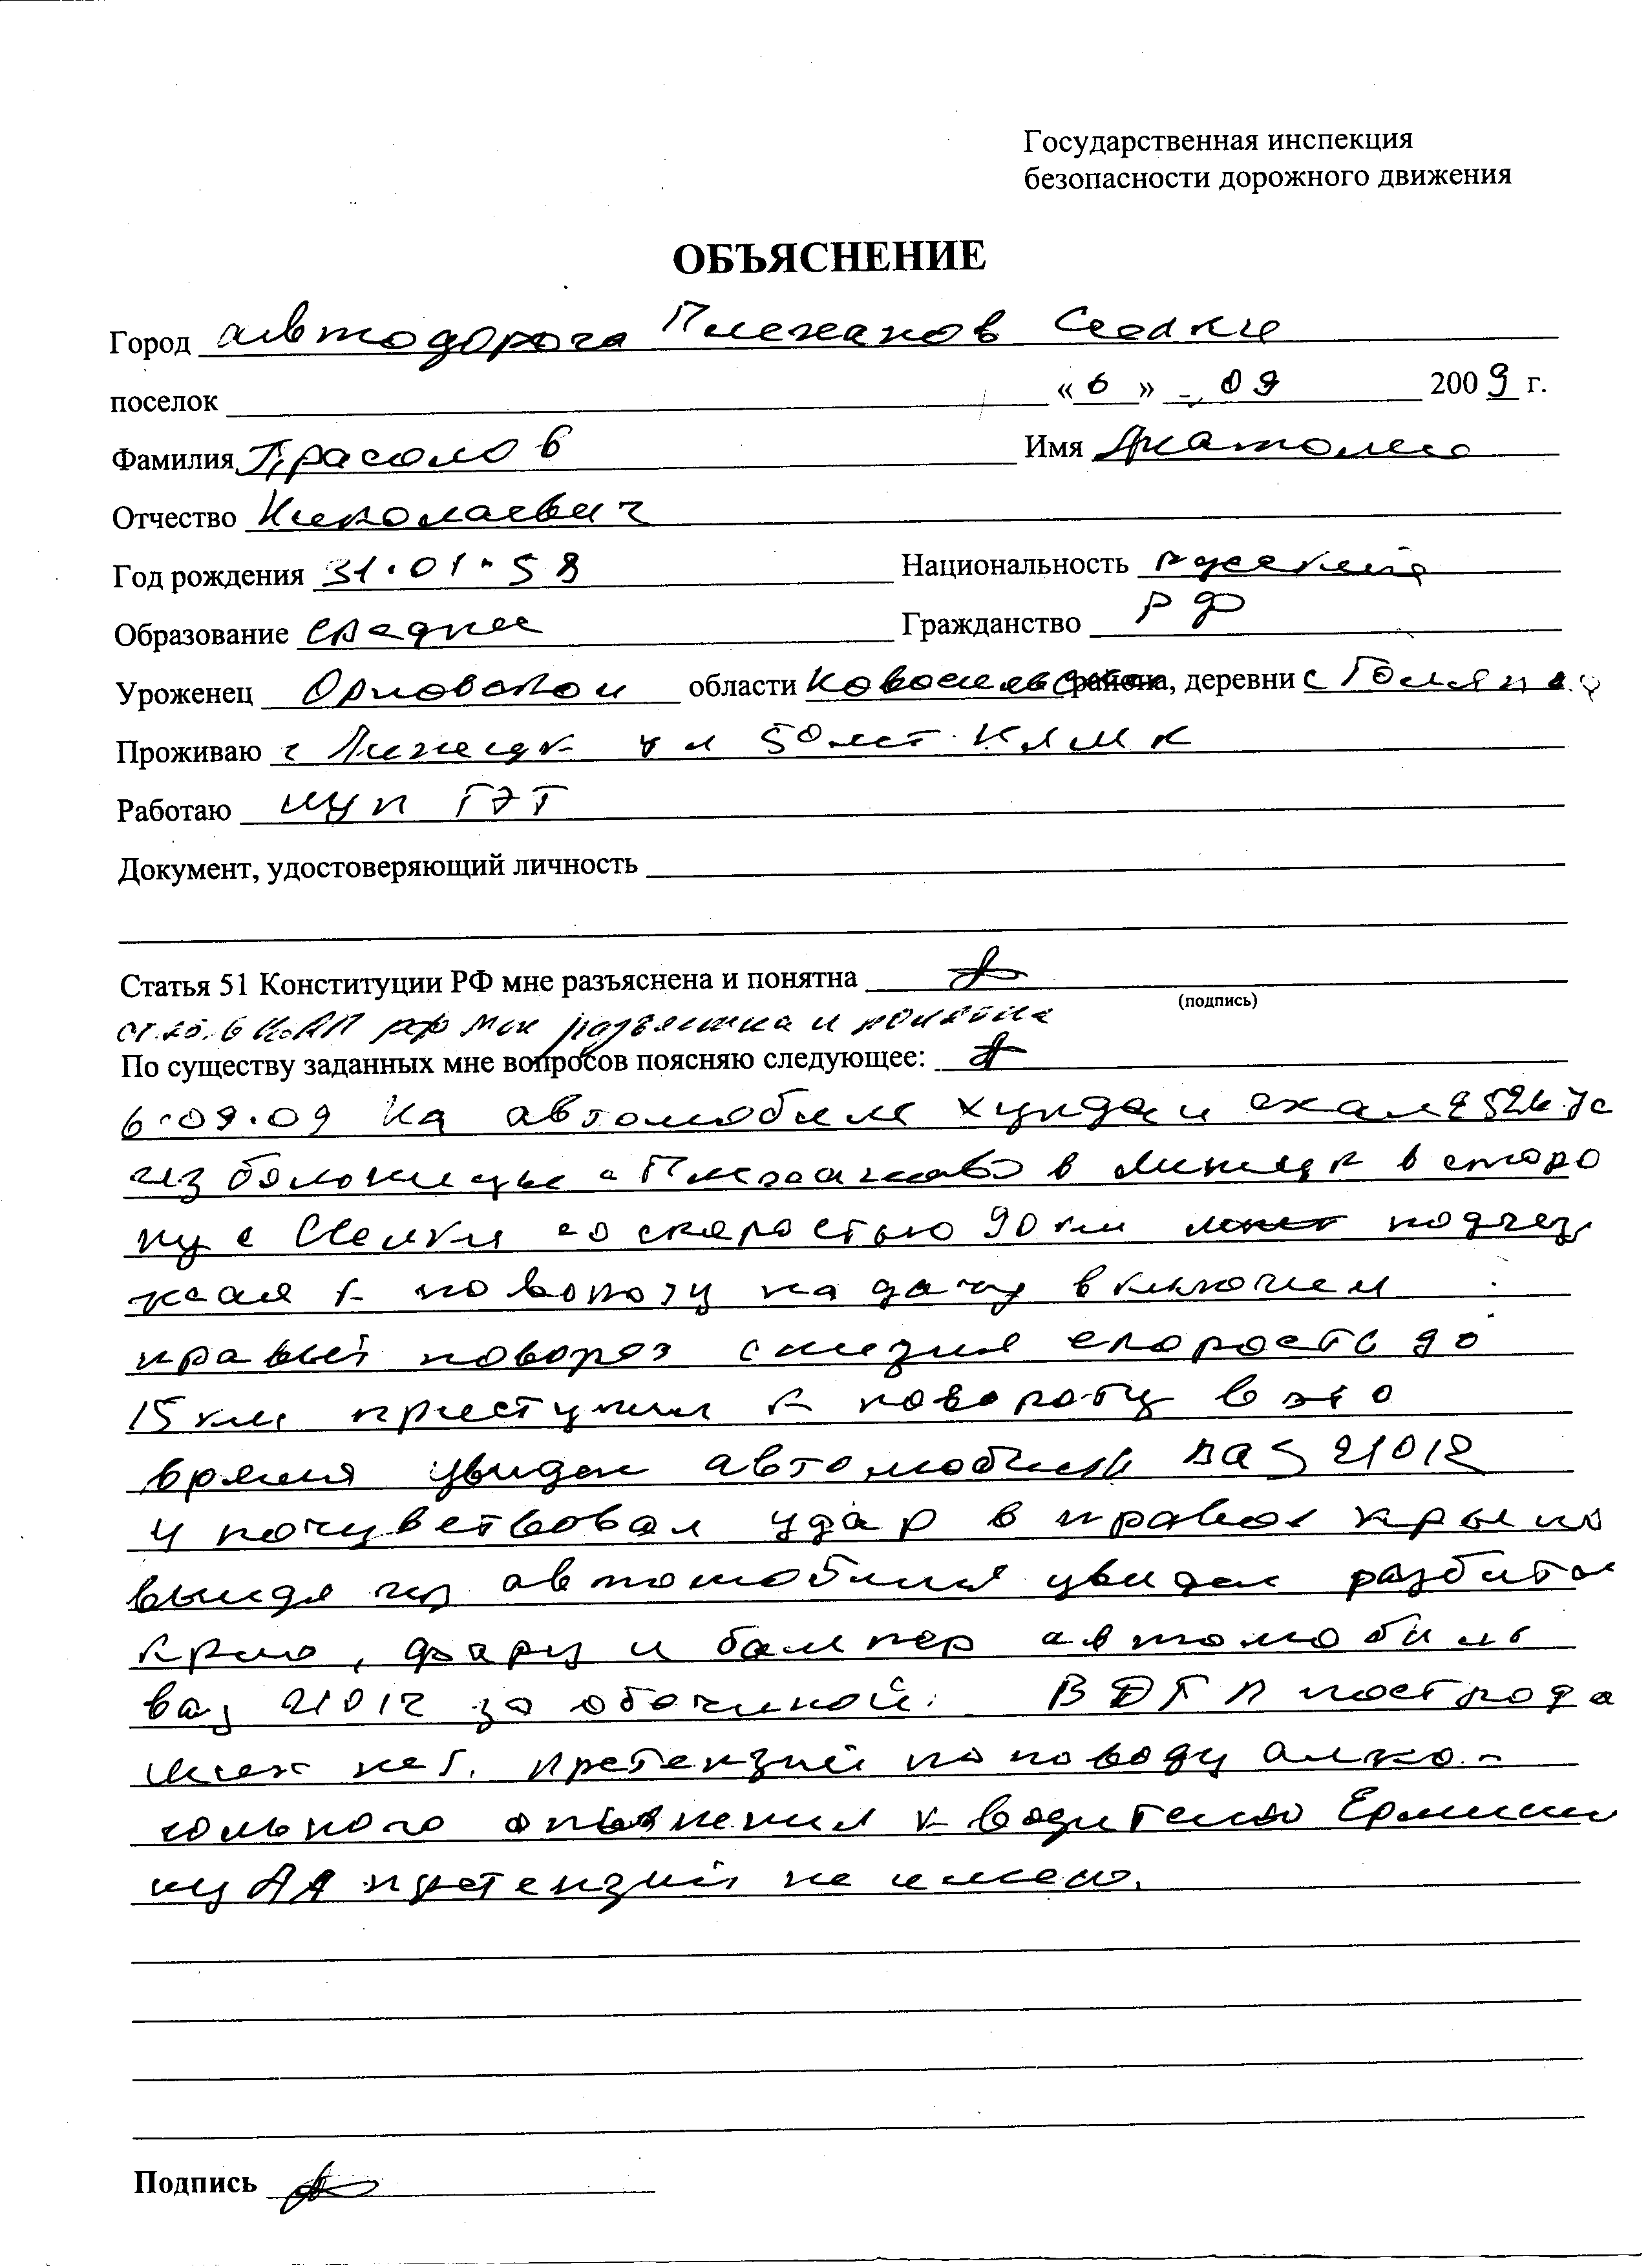 Государственная инспекция
безопасности дорожного движения
ОБЪЯСНЕНИЕ
Город автодорога Плеханов Сселки
поселок «6» 09 2009 г.
Фамилия Прасолов Имя Анатолий
Отчество Николаевич
Год рождения 31.01.58 Национальность русский
Образование среднее Гражданство РФ
Уроженец Орловской области Новосильский района, деревни с
Проживаю г Липецк ул 50 лет НЛМК
Работаю МУП ГЭТ
Документ, удостоверяющий личность
Статья 51 Конституции РФ мне разъяснена и понятна
(подпись)
ст. 25.6 КоАП РФ мне разъяснена и понятна
По существу заданных мне вопросов поясняю следующее:
6.09.09 На автомобиле хундаи ехал
из с в Липецк в сторо
ну с Сселки со скоростью 90 км подъез
жая к повороту на дачу включил
правый поворот снизил скорость до
15 км приступил к повороту в это
время увидел автомобиль ваз 21012
и почувствовал удар в правое крыло
выйдя из автомобиля увидел разбито
крыло, фару и бампер автомобиль
ваз 21012 за обочиной. В ДТП пострада
вших нет. претензий по поводу алко-
гольного опьянения к водителю
ну АА претензий не имею.
Подпись